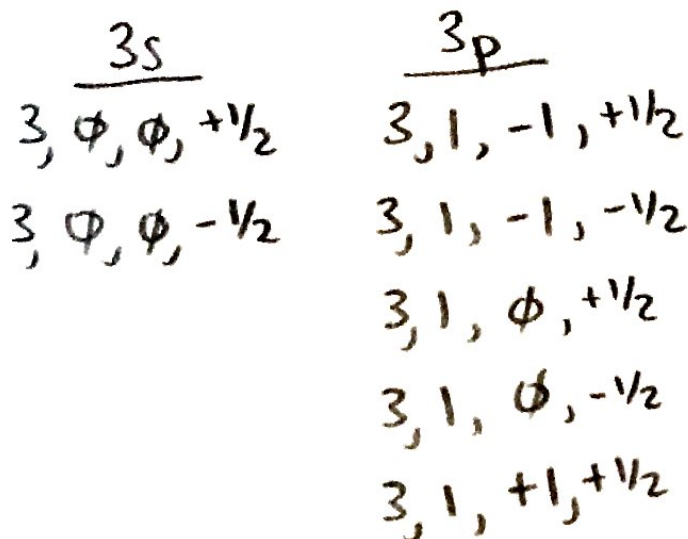 3s
3, ϕ, ϕ, +1/2
3, ϕ, ϕ, -1/2
3p
3, 1, -1, +1/2
3, 1, -1, -1/2
3, 1, ϕ, +1/2
3, 1, ϕ, -1/2
3, 1, +1, +1/2